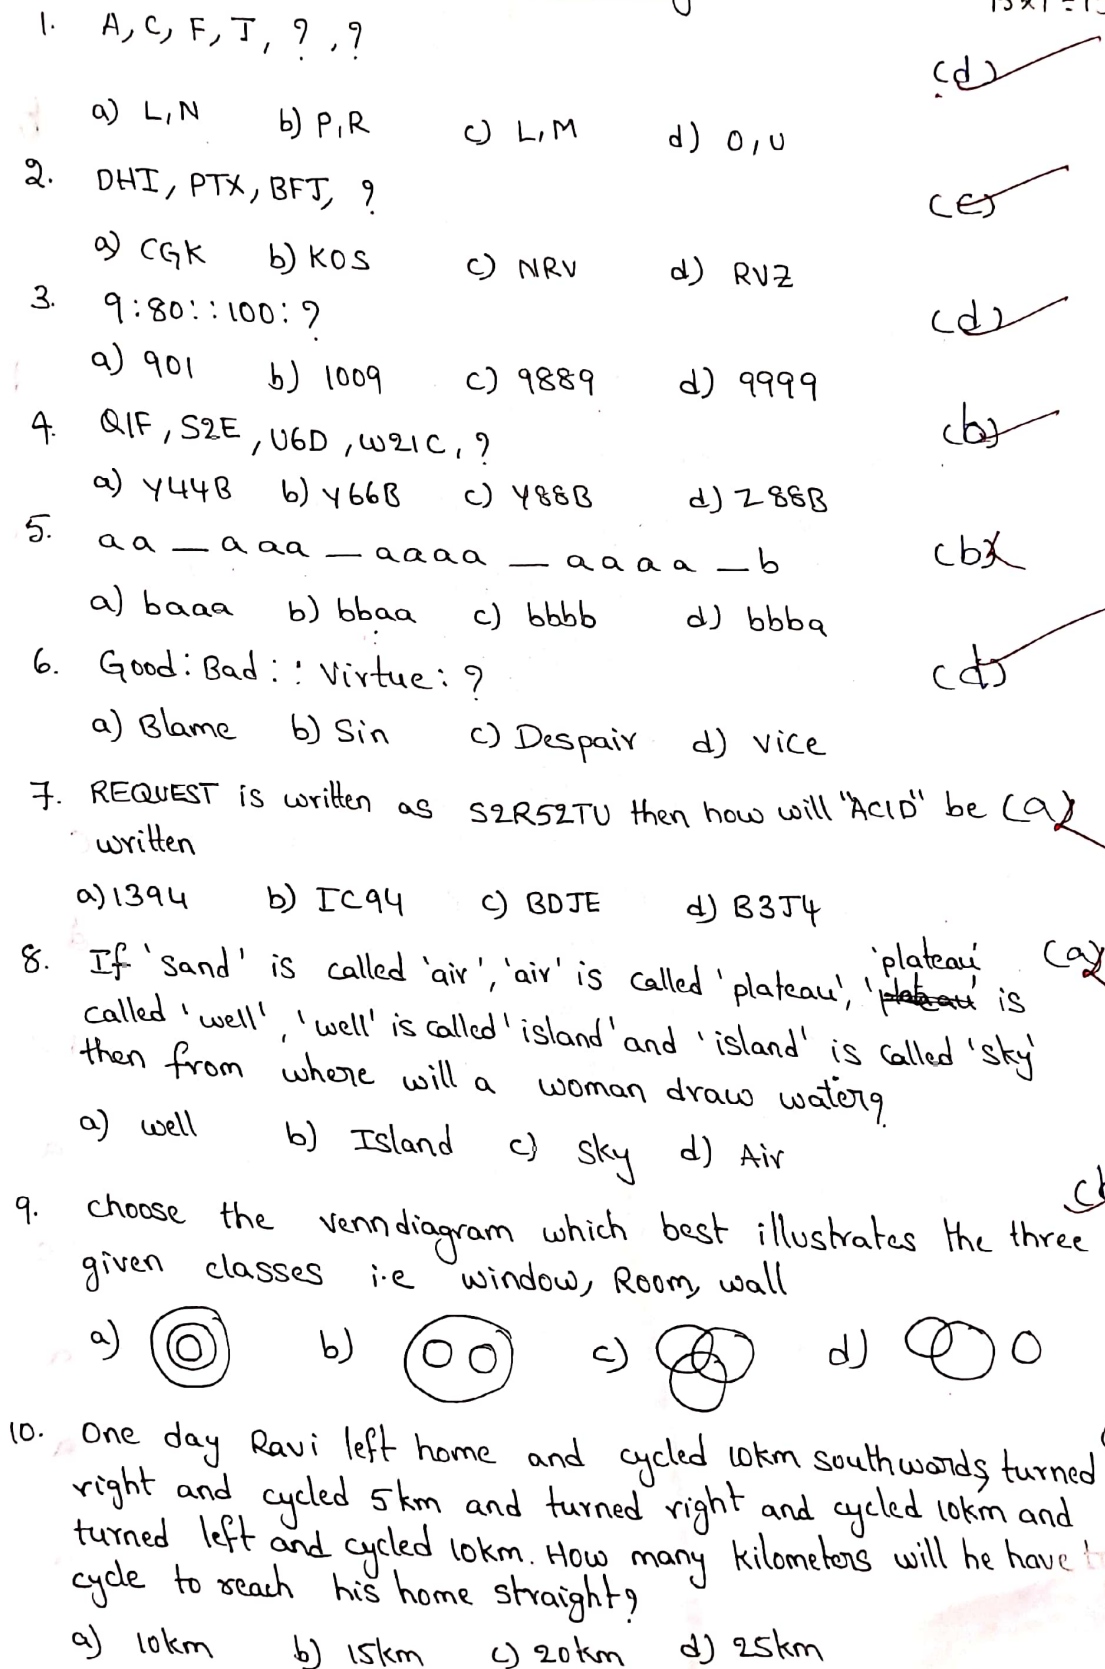 1. A, C, F, J, ?, ?
(d)
a) L,N b) P,R c) L,M d) O,U
2. DHI, PTX, BFJ, ?
(c)
a) CGK b) KOS c) NRV d) RVZ
3. 9:80::100:?
(d)
a) 901 b) 1009 c) 9889 d) 9999
4. Q1F, S2E, U6D, W21C, ?
(b)
a) Y44B b) Y66B c) Y88B d) Z88B
5. aa _ aaa _ aaaa _ aaaa _ b
(b)
a) baaa b) bbaa c) bbbb d) bbba
6. Good : Bad :: Virtue : ?
(d)
a) Blame b) Sin c) Despair d) vice
7. REQUEST is written as S2R52TU then how will "ACID" be (a)
written
a) 1394 b) IC94 c) BDJE d) B3J4
'plateau' (a)
8. If 'sand' is called 'air', 'air' is called 'plateau', is
called 'well', 'well' is called 'island' and 'island' is called 'sky'
then from where will a woman draw water?
a) well b) Island c) sky d) Air
9. choose the venndiagram which best illustrates the three
given classes i.e window, Room, wall
a) b) c) d)
10. One day Ravi left home and cycled 10km southwards, turned
right and cycled 5km and turned right and cycled 10km and
turned left and cycled 10km. How many kilometers will he have
cycle to reach his home straight?
a) 10km b) 15km c) 20km d) 25km